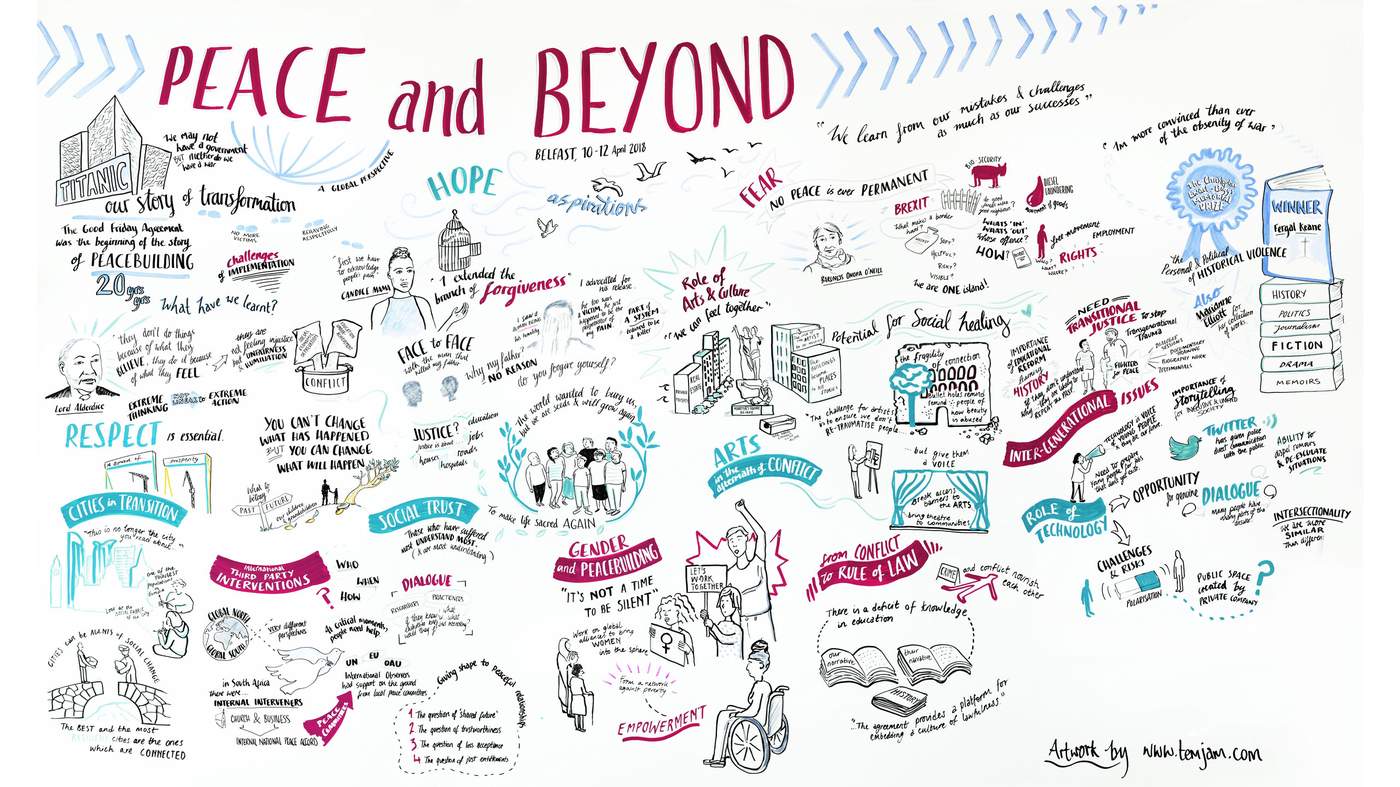 PEACE and BEYOND
BELFAST, 10-12 April 2018
"We learn from our mistakes & challenges
as much as our successes"
"I'm more convinced than ever
of the obsenity of war"
TITANIC
We may not
have a government
BUT neither do we
have a war
A GLOBAL PERSPECTIVE
our story of transformation
The Good Friday Agreement
was the beginning of the story
of PEACEBUILDING
20
NO MORE
VICTIMS
BEHAVING
RESPECTFULLY
Challenges
of IMPLEMENTATION
What have we learnt?
"they don't do things
because of what they
BELIEVE, they do it because
of what they FEEL
they are
not feeling injustice
but UNFAIRNESS
HUMILIATION
Lord Alderdice
EXTREME
THINKING
to EXTREME
ACTION
CONFLICT
RESPECT is essential.
YOU CAN'T CHANGE
WHAT HAS HAPPENED
BUT YOU CAN CHANGE
WHAT WILL HAPPEN
PAST
FUTURE
our children &
grandchildren
HOPE
aspirations
"Just we have
to acknowledge
people's past"
CANDICE MAMA
"I extended the
branch of forgiveness"
I advocated for
his release
he too was
a VICTIM, he just
happened to be the
perpetrator of
my PAIN
PART of
a SYSTEM
FACE to FACE
walk with the man that
killed my father
why my father?
NO REASON
do you forgive yourself?
JUSTICE?
justice is about
education
jobs
roads
houses
hospitals
"the world wanted to bury us,
but we are seeds & will grow again
To make life sacred AGAIN
SOCIAL TRUST
Those who have suffered
most UNDERSTAND MOST.
(& are most understanding)
FEAR
NO PEACE is ever PERMANENT
BREXIT
What makes a border
hard?
VISIBLE?
We are ONE island!
BARONESS ONORA O'NEILL
BIO SECURITY
DIESEL
LAUNDERING
movement of goods
WHATS 'IN'
WHATS 'OUT'
whose offence?
HOW!
free movement
EMPLOYMENT
RIGHTS
Role of
Arts & Culture
"We can feel together"
Potential for Social healing
the fragility
of connection
bullet holes remind
people of
how beauty
is abused
"The challenge for artists
is to ensure we don't
RE-TRAUMATISE people..
... but give them
a VOICE
ARTS
in the
aftermath of CONFLICT
Break access
barriers to
the ARTS
bring theatre
to communities
WINNER
Fergal Keane
"the
Personal & Political
of HISTORICAL VIOLENCE
Also
Marianne
Elliott for
her collection
of works.
HISTORY
POLITICS
Journalism
FICTION
DRAMA
MEMOIRS
NEED
TRANSITIONAL
JUSTICE to stop
Transgenerational
Trauma
IMPORTANCE
of EDUCATIONAL
REFORM
HISTORY
REPEAT the PAST
FIGHTERS
for PEACE
DOCUMENTARY
BIOGRAPHY WORK
TESTIMONIALS
INTER-GENERATIONAL ISSUES
IMPORTANCE of
Storytelling
for INCLUSIVE & SHARED
SOCIETY
TWITTER
has given police
direct communication
with the public
ABILITY to
dispel rumours
& DE-ESCALATE
SITUATIONS
ROLE of
TECHNOLOGY
OPPORTUNITY
for genuine DIALOGUE
INTERSECTIONALITY
We are more
SIMILAR
than different
CHALLENGES
& RISKS
POLARISATION
PUBLIC SPACE
created by
PRIVATE COMPANY
?
CITIES in TRANSITION
"This is no longer the city
you read about..."
CITIES can be AGENTS of SOCIAL CHANGE
The BEST and the most
cities are the ones
which are CONNECTED
International
THIRD PARTY
INTERVENTIONS
?
WHO
WHEN
HOW
DIALOGUE
RESEARCHERS
PRACTITIONERS
GLOBAL NORTH
GLOBAL SOUTH
very different
perspectives
At critical moments,
people need help
UN EU OAU
International Observers
had support on the ground
from local peace committees
in South Africa
there were...
INTERNAL INTERVENERS
CHURCH & BUSINESS
INTERNAL NATIONAL PEACE ACCORD
PEACE
COMMITTEES
Giving shape to Peaceful relationships
1 The question of 'shared future'
2 The question of trustworthiness
3 The question of loss acceptance
4 The question of just entitlements
GENDER
and PEACEBUILDING
"IT'S NOT A TIME
TO BE SILENT"
Work on global
alliances to bring
WOMEN
into the sphere
LET'S
WORK
TOGETHER
Form a network
against poverty
EMPOWERMENT
from CONFLICT
to RULE of LAW
CRIME
and conflict nourish
each other
There is a deficit of knowledge
in education
our
narrative
their
narrative
HISTORY
"...The agreement provides a platform for
embedding a culture of lawfulness"
Artwork by www.temjam.com